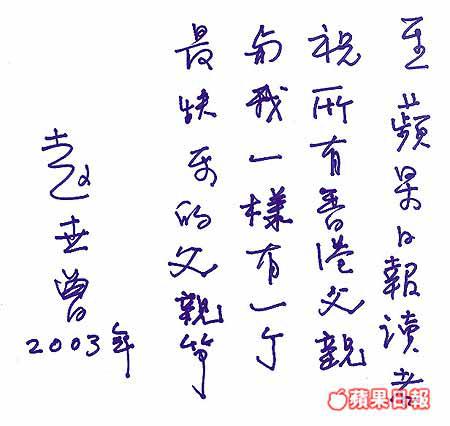 至蘋果日報讀者
祝所有香港父親
向我一樣有一个
最快乐的父親节
赵世曾
2003年
蘋果日報